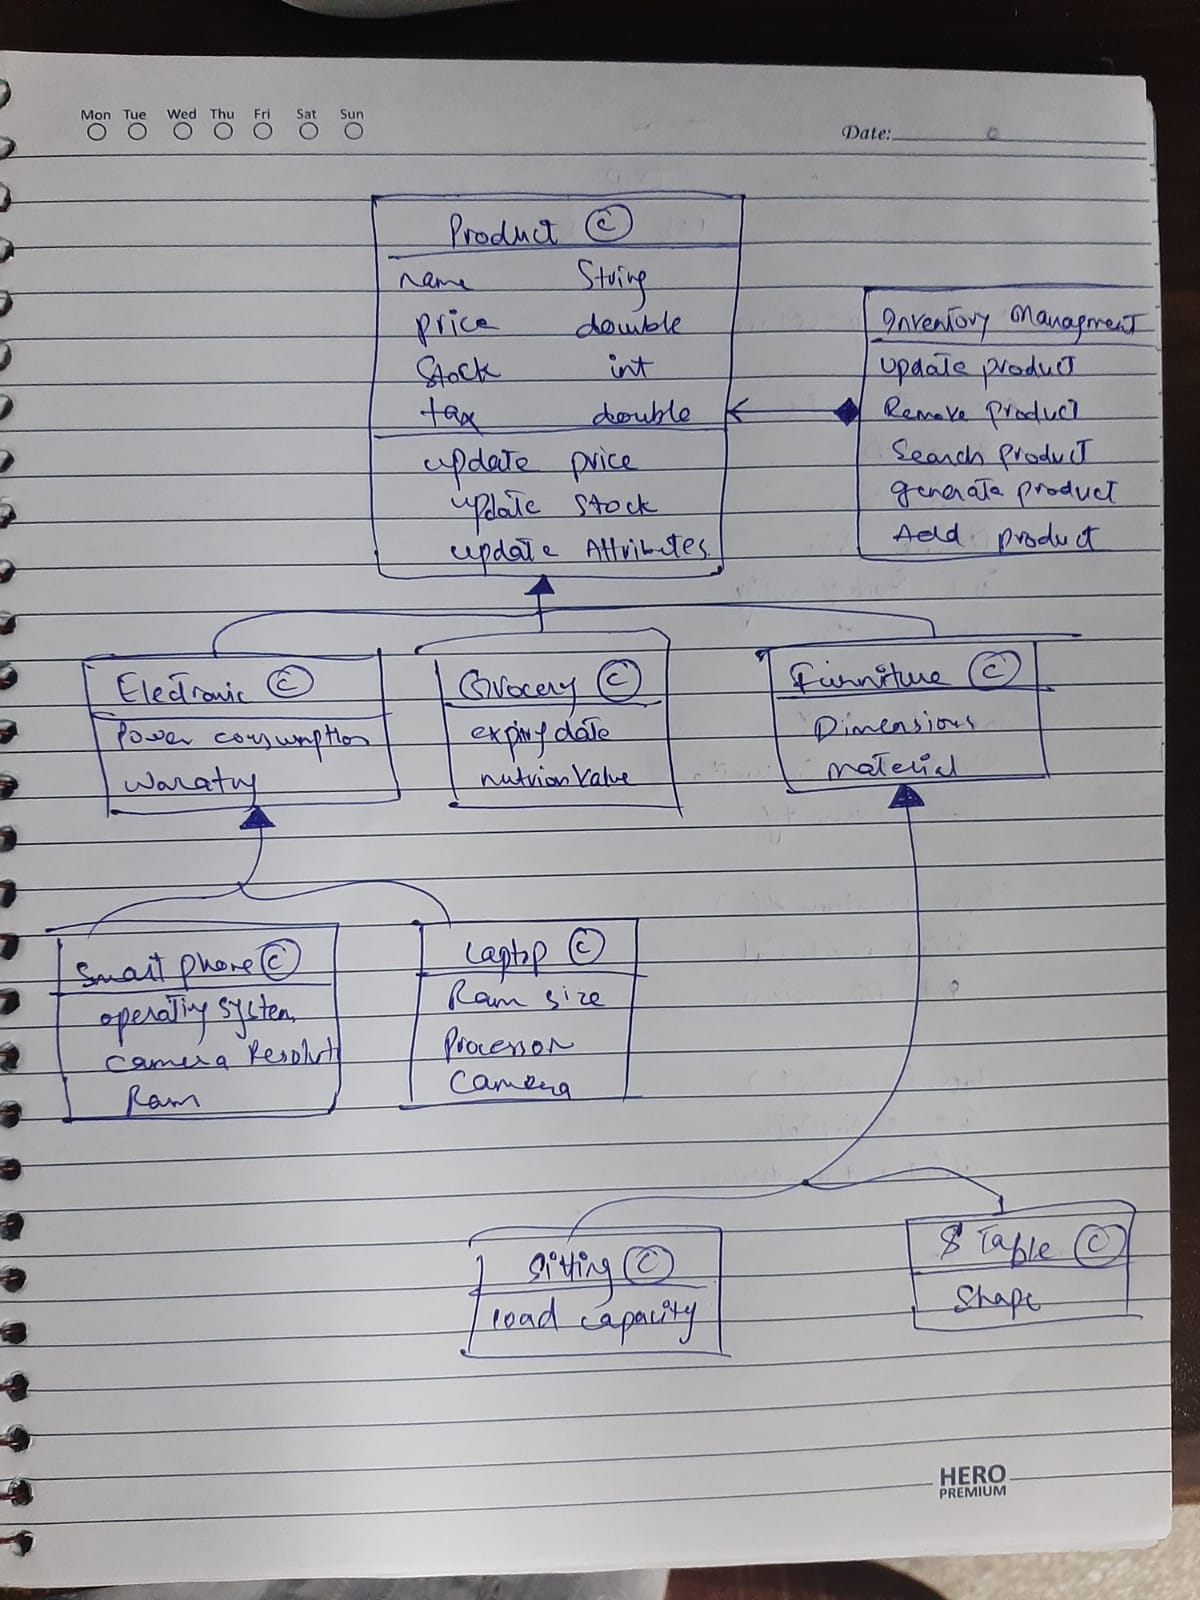 Mon Tue Wed Thu Fri Sat Sun
Date:
Product C
name String
price double
Stock int
tax double
update price
update Stock
update Attributes
Inventory Managment
Update product
Remove product
Search product
generate product
Add product
Electronic C
Power consumption
Waraty
Grocery C
expiry date
nutrion Value
Furniture C
Dimensions
Material
Smart phone C
operating system
Camera Resolut
Ram
Laptop C
Ram size
Processor
Camera
Sitting C
load capacity
Table C
Shape
HERO
PREMIUM